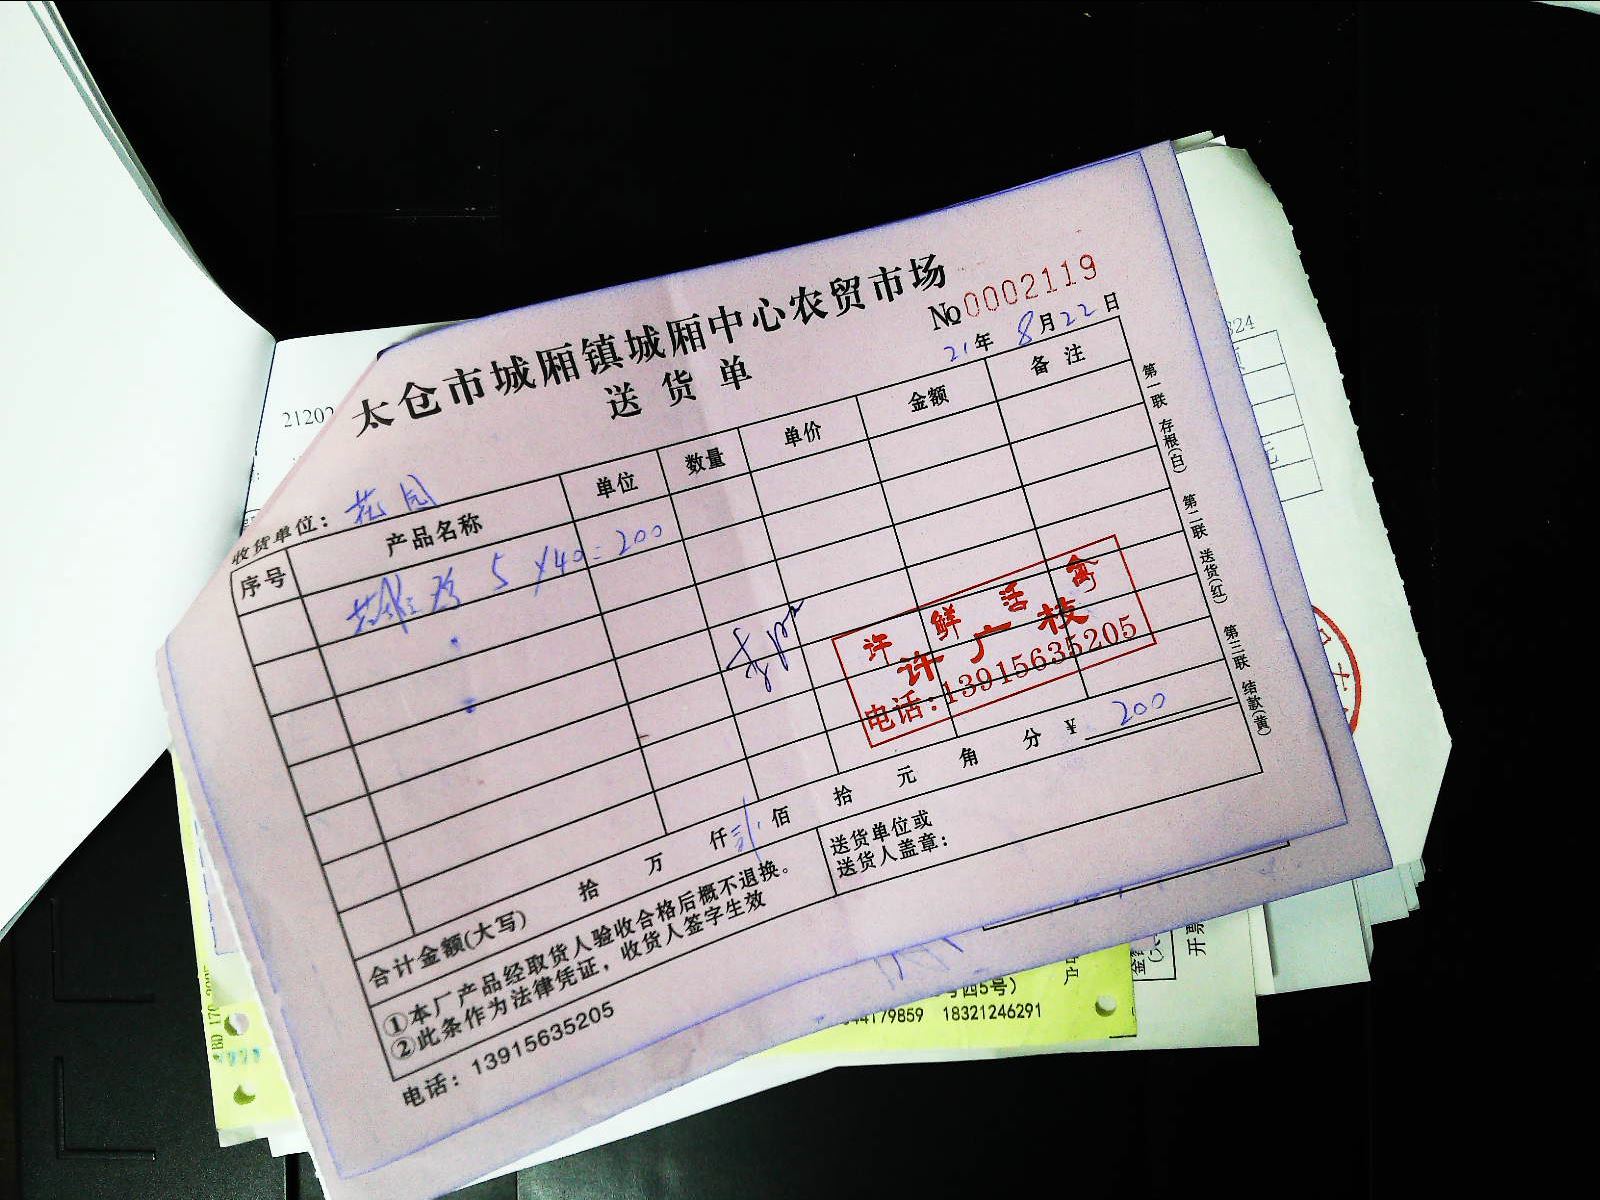 太仓市城厢镇城厢中心农贸市场
送货单
№0002119
21年 8月22日
收货单位：花园
序号 产品名称 单位 数量 单价 金额 备注
5×40=200
许鲜活禽
许广枝
电话:13915635205
合计金额(大写) 拾 万 仟 佰 拾 元 角 分 ¥ 200
①本厂产品经取货人验收合格后概不退换。
②此条作为法律凭证，收货人签字生效
送货单位或
送货人盖章：
电话：13915635205
第一联 存根(白) 第二联 送货(红) 第三联 结款(黄)
21202
324
元
号四5号）
44179859 18321246291
开票